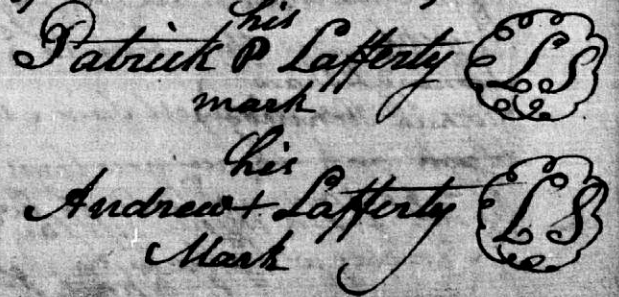 his
Patrick P Lafferty LS
mark
his
Andrew + Lafferty LS
Mark